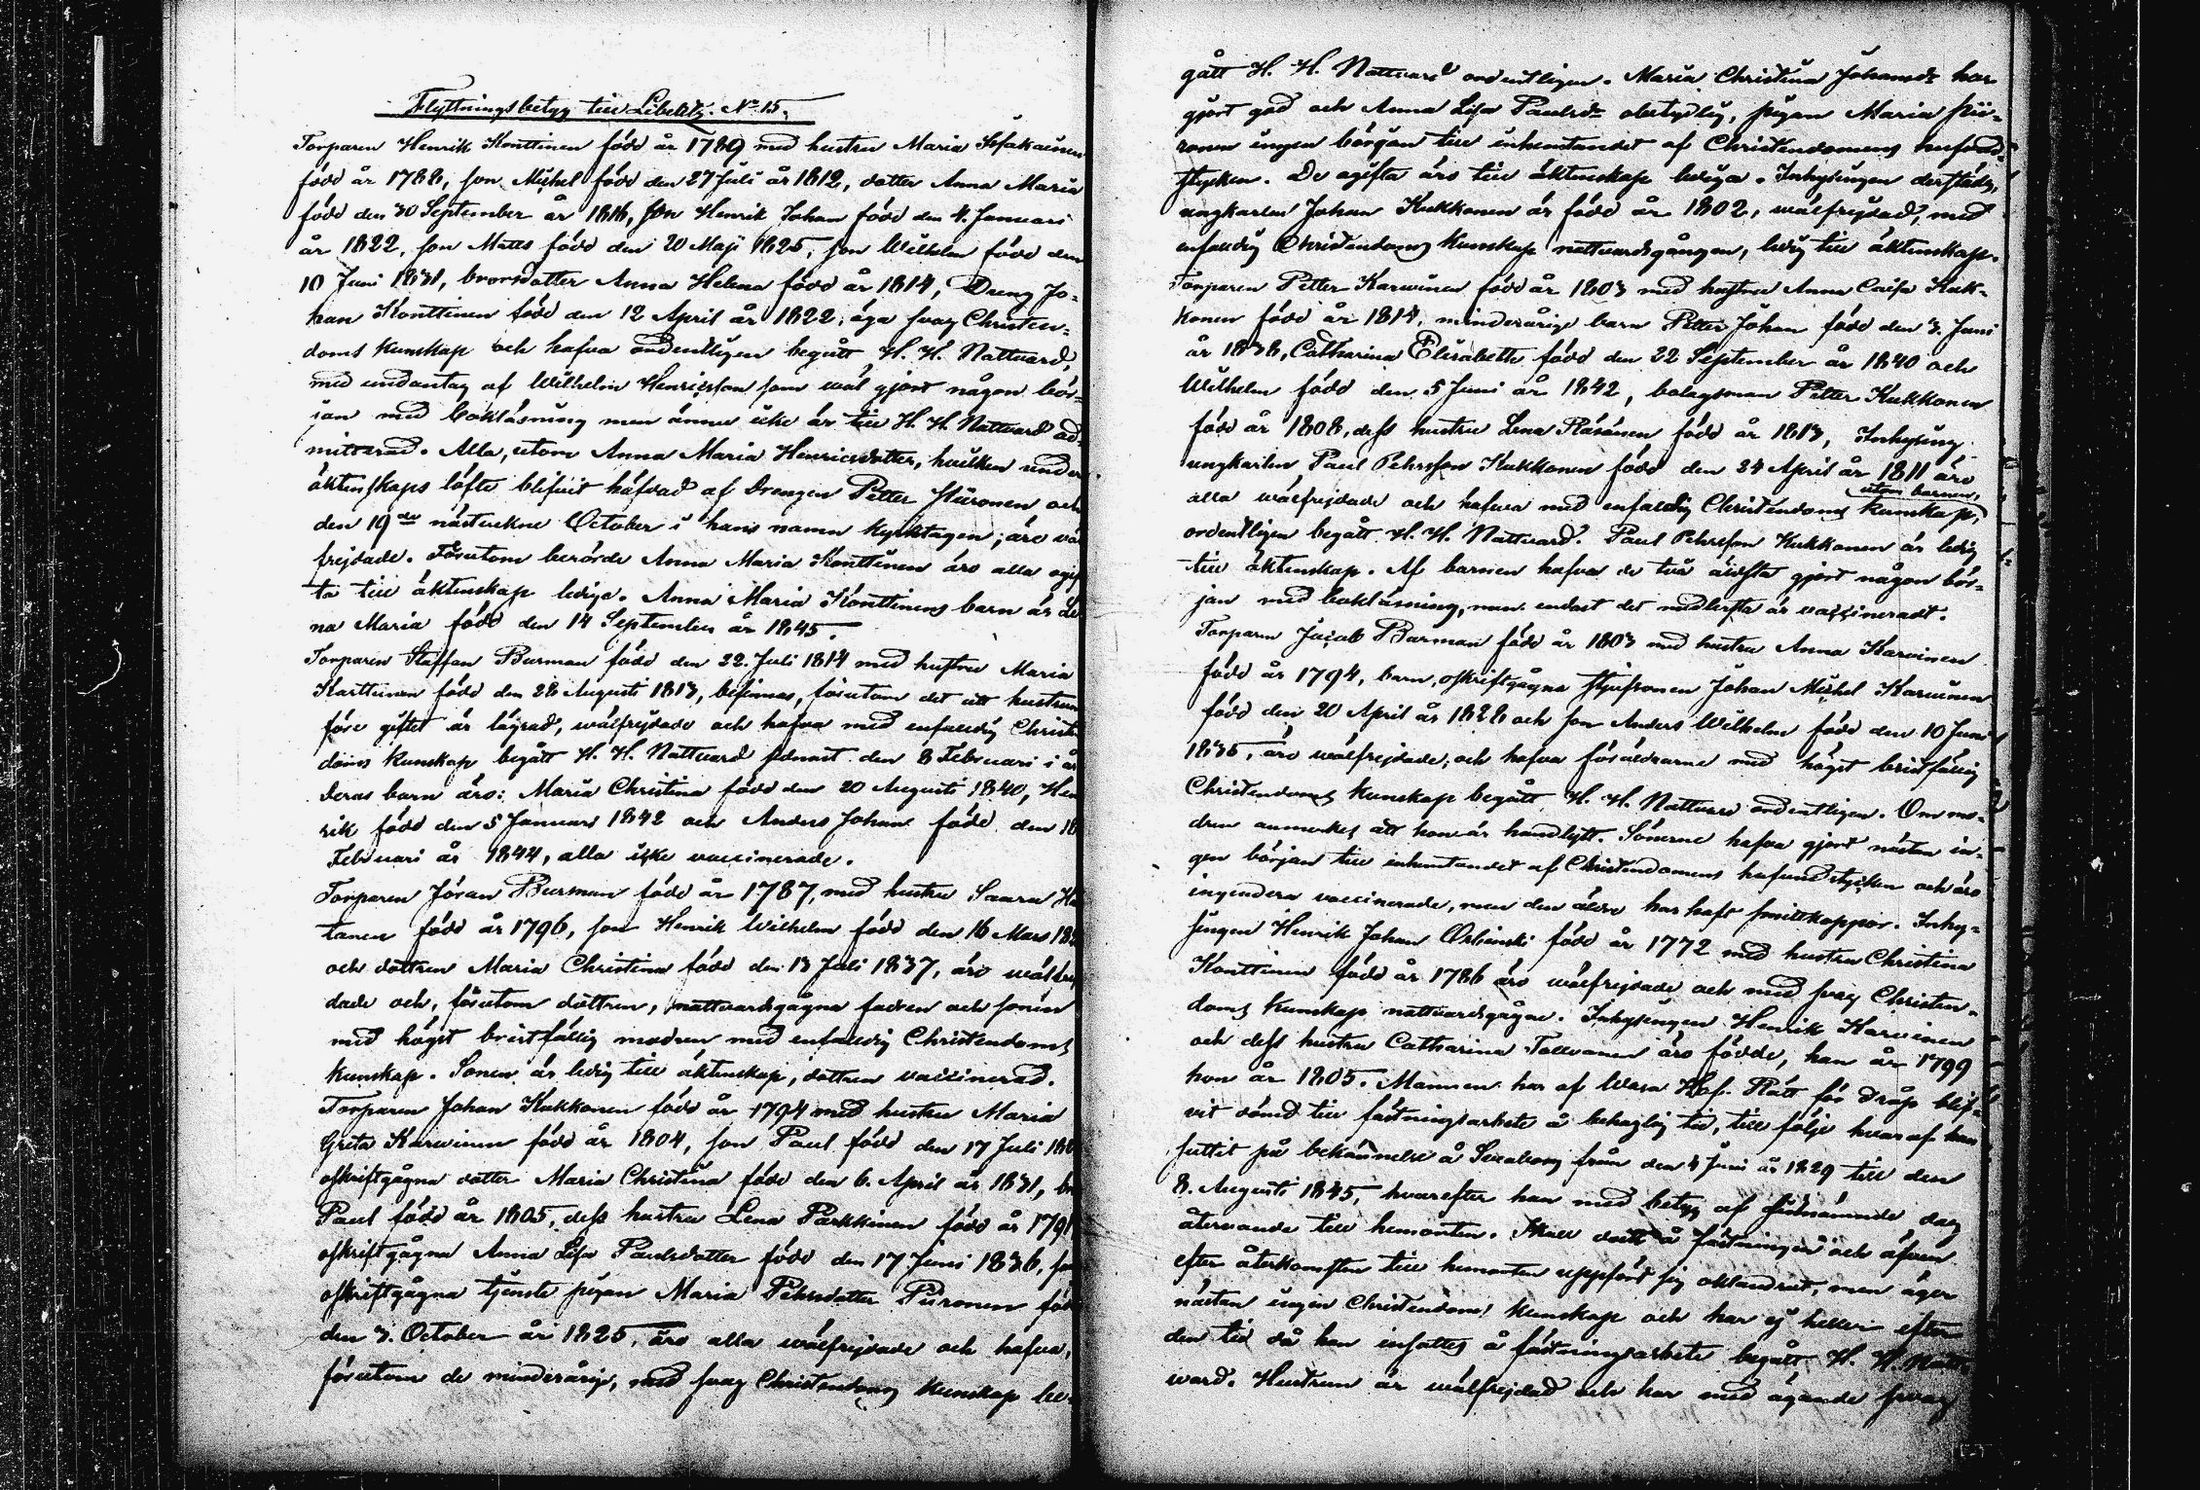 Flyttningsbetyg till Libelitz. No 15.
Torparen Henrik Konttinen född år 1789 med hustru Maria
född år 1788, son Michel född den 27 Juli år 1812, dotter Anna Maria
född den 30 September år 1816, son Henrik Johan född den 4. Januari
år 1822, son Matts född den 20 Maji 1825, son Wilhelm född den
10 Juni 1831, brorsdotter Anna Helena född år 1814, Dreng Jo-
han Konttinen född den 12 April år 1822, äga svag Christen-
doms kunskap och hafva ordentligen begått H. H. Nattvard,
med undantag af Wilhelm Henricsson som wäl gjort någon bör-
jan med bokläsning men ännu icke är till H. H. Nattvard ad-
mitterad. Alla, utom Anna Maria Henricsdotter, hvilken under
äktenskaps löfte blifvit häfdad af Drengen Petter Piironen och
den 19de nästvekne October i hans namn kyrktagen; äro väl
frejdade. Förutom berörde Anna Maria Konttinen äro alla ogif
ta till äktenskap lediga. Anna Maria Konttinens barn är
na Maria född den 14 September år 1845.
Torparen Staffan Burman född den 22. Juli 1814 med hustru Maria
Karttunen född den 28 Augusti 1813, befinnas, förutom det att hustrun
före giftet är lägrad, wälfrejdade och hafva med enfaldig Christen
doms kunskap begått H. H. Nattvard sednast den 8 Februari i år
Deras barn äro: Maria Christina född den 20 Augusti 1840, Hen
rik född den 5 Januari 1842 och Anders Johan född den 18
Februari år 1844, alla icke vaccinerade.
Torparen Jöran Burman född år 1787, med hustru Saara
tanen född år 1796, son Henrik Wilhelm född den 16 Mars 18
och dottren Maria Christina född den 13 Juli 1837, äro wälfrej
dade och, förutom dottren, nattvardsgågna fadren och sonen
med högst bristfällig modren med enfaldig Christendoms
kunskap. Sonen är ledig till äktenskap, dottren vaccinerad.
Torparen Johan Kukkonen född år 1794 med hustru Maria
Greta Karwinen född år 1804, son Paul född den 17 Juli 18
oskriftgågna dotter Maria Christina född den 6. April år 1831,
Paul född år 1805, dess hustru Lena Parkkinen född år 179
oskriftgågna Anna Lisa Paulsdotter född den 17 Juni 1836,
oskriftgågna tjenste pigan Maria Pehrsdotter Piironen född
den 3. October år 1825, äro alla wälfrejdade och hafva,
förutom de minderårige, med svag Christendoms kunskap be-
gått H. H. Nattvard ordentligen. Maria Christina Johansdr har
gjort god och Anna Lisa Paulsdr obetydlig, pigan Maria Pii-
ronen ingen början till inhemtandet af Christendomens hufvud-
stycken. De ogifta äro till äktenskap lediga. Inhysingen derstädes,
ungkarlen Johan Kukkonen är född år 1802, wälfrejdad, med
enfaldig Christendoms kunskap nattvardsgången, ledig till äktenskap.
Torparen Petter Karwinen född år 1803 med hustru Anna Caisa Kuk-
konen född år 1814, minderårige barn Petter Johan född den 3. Juni
år 1838, Catharina Elisabeth född den 22 September år 1840 och
Wilhelm född den 5 Juni år 1842, bolagsman Petter Kukkonen
född år 1808, dess hustru Lena Räsänen född år 1813, Inhysing
ungkarlen Paul Pehrsson Kukkonen född den 24 April år 1811 äro
utom barnen,
alla wälfrejdade och hafva med enfaldig Christendoms kunskap,
ordentligen begått H. H. Nattvard. Paul Pehrsson Kukkonen är ledig
till äktenskap. Af barnen hafva de två äldsta gjort någon bör-
jan med bokläsning, men endast det medlersta är vaccineradt.
Torparen Jacob Burman född år 1803 med hustru Anna Karvinen
född år 1794, barn, oskriftgågna styfsonen Johan Michel Karvinen
född den 20 April år 1828 och son Anders Wilhelm född den 10 Juni
1835, äro wälfrejdade; och hafva föräldrarne med högst bristfällig
Christendoms kunskap begått H. H. Nattvard ordentligen. Om mo-
dren anmerkes att hon är handlytt. Sönerne hafva gjort nästan in-
gen början till inhemtandet af Christendomens hufvudstycken och äro
ingendera vaccinerade, men den äldre har haft smittkoppor. Inhy-
singen Henrik Johan Orbinski född år 1772 med hustru Christina
Konttinen född år 1786 äro wälfrejdade och med svag Christen-
doms kunskap nattvardsgågne. Inhysingen Henrik Karvinen
och dess hustru Catharina Tolvanen äro födde, han år 1799
hon år 1805. Mannen har af Wasa Hof-Rätt för dråp blif-
vit dömd till fästningsarbete å behaglig tid, till följe hvaraf han
suttit på bekännelse å Sveaborg från den 4 Juni år 1829 till den
8. Augusti 1845, hvarefter han med betyg af sistnämnde dag
återvände till hemorten. Skall dertill å fästningen och äfven
efter återkomsten till hemorten uppfört sig oklandrat, men äger
nästan ingen Christendoms kunskap och har ej heller efter
den tid då han insattes å fästningsarbete begått H. H. Natt-
ward. Hustrun är wälfrejdad och har med ägande svag